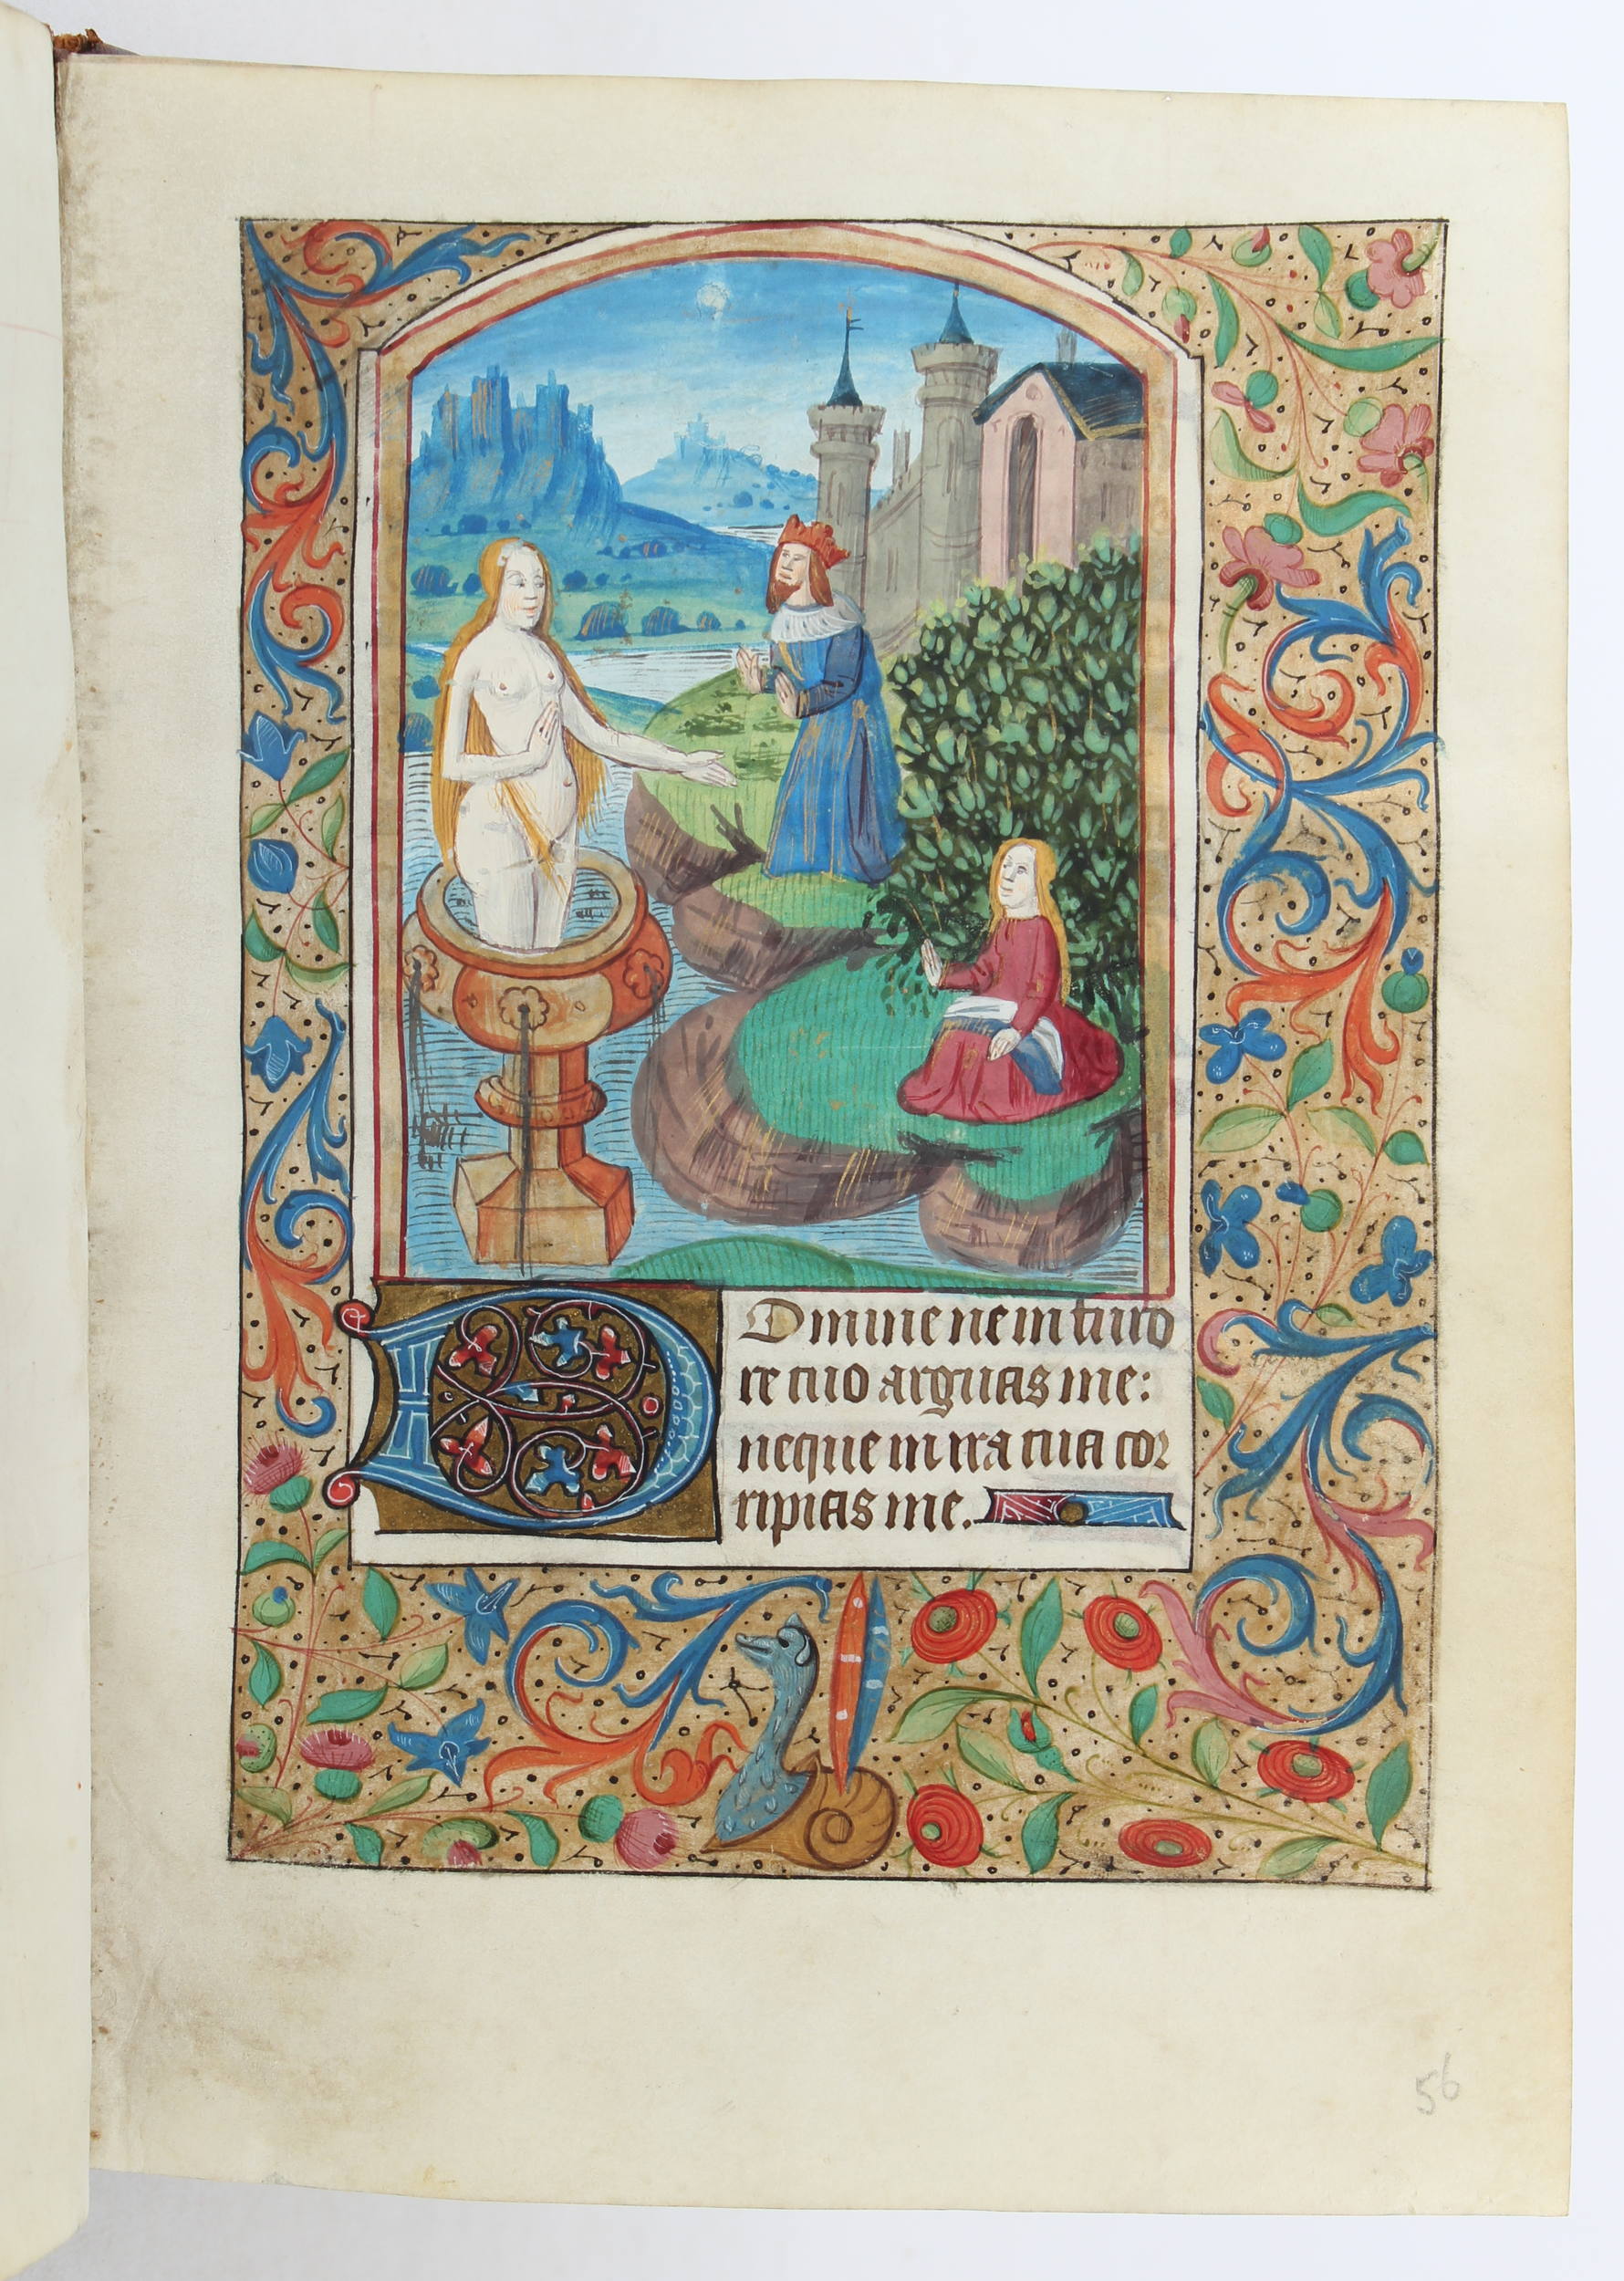 Domine ne in furo
re tuo arguas me:
neque in ira tua cor
ripias me.
56